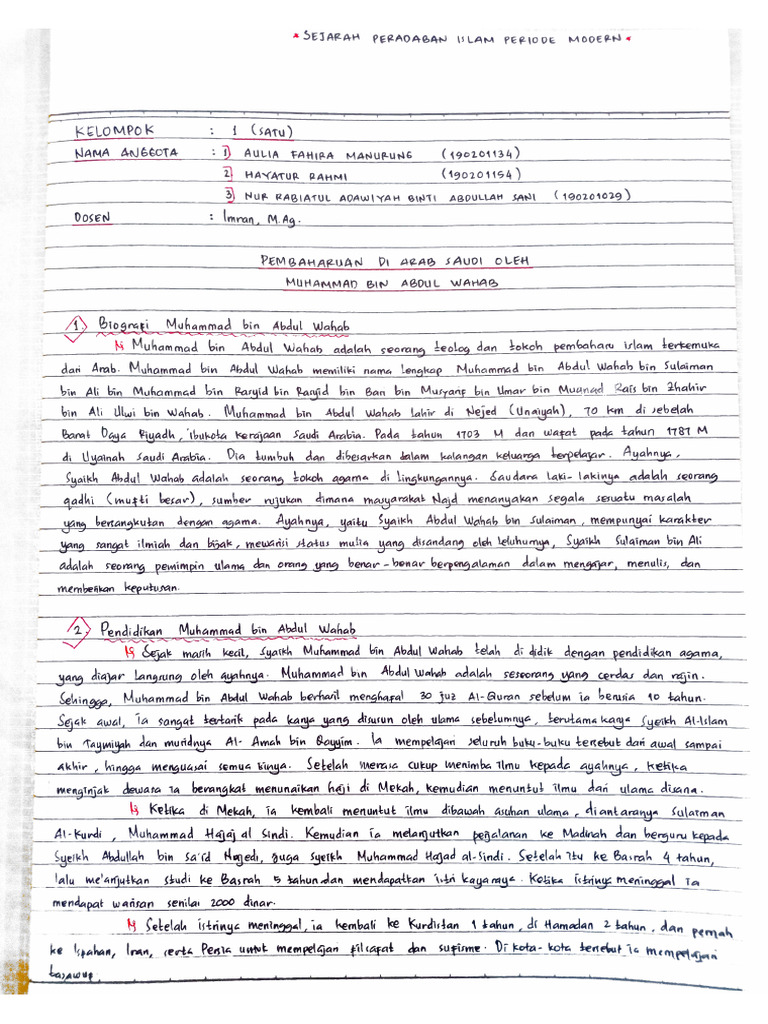 * SEJARAH PERADABAN ISLAM PERIODE MODERN *
KELOMPOK : 1 (SATU)
NAMA ANGGOTA : 1) AULIA FAHIRA MANURUNG (190201134)
2) HAYATUR RAHMI (190201154)
3) NUR RABIATUL ADAWIYAH BINTI ABDULLAH SANI (190201029)
DOSEN : Imran, M.Ag.
PEMBAHARUAN DI ARAB SAUDI OLEH
MUHAMMAD BIN ABDUL WAHAB
1. Biografi Muhammad bin Abdul Wahab
Muhammad bin Abdul Wahab adalah seorang teolog dan tokoh pembaharu islam terkemuka
dari Arab. Muhammad bin Abdul Wahab memiliki nama lengkap Muhammad bin Abdul Wahab bin Sulaiman
bin Ali bin Muhammad bin Rasyid bin Rasyid bin Bari bin Musyarif bin Umar bin Muanad Rais bin Zhahir
bin Ali Ulwi bin Wahab. Muhammad bin Abdul Wahab lahir di Nejed (Unaiyah), 70 km di sebelah
Barat Daya Riyadh, ibukota kerajaan Saudi Arabia. Pada tahun 1703 M dan wafat pada tahun 1787 M
di Uyainah Saudi Arabia. Dia tumbuh dan dibesarkan dalam kalangan keluarga terpelajar. Ayahnya,
Syaikh Abdul Wahab adalah seorang tokoh agama di lingkungannya. Saudara laki-lakinya adalah seorang
qadhi (mufti besar), sumber rujukan dimana masyarakat Najd menanyakan segala sesuatu masalah
yang bersangkutan dengan agama. Ayahnya, yaitu Syaikh Abdul Wahab bin Sulaiman, mempunyai karakter
yang sangat ilmiah dan bijak, mewarisi status mulia yang disandang oleh leluhurnya, Syaikh Sulaiman bin Ali
adalah seorang pemimpin ulama dan orang yang benar-benar berpengalaman dalam mengajar, menulis, dan
memberikan keputusan.
2. Pendidikan Muhammad bin Abdul Wahab
Sejak masih kecil, Syaikh Muhammad bin Abdul Wahab telah di didik dengan pendidikan agama,
yang diajar langsung oleh ayahnya. Muhammad bin Abdul Wahab adalah seseorang yang cerdas dan rajin.
Sehingga, Muhammad bin Abdul Wahab berhasil menghafal 30 juz Al-Quran sebelum ia berusia 10 tahun.
Sejak awal, ia sangat tertarik pada karya yang disusun oleh ulama sebelumnya, terutama karya Syeikh Al-Islam
bin Taymiyah dan muridnya Al-Amah bin Qayyim. Ia mempelajari seluruh buku-buku tersebut dari awal sampai
akhir, hingga menguasai semua isinya. Setelah merasa cukup menimba ilmu kepada ayahnya, ketika
menginjak dewasa ia berangkat menunaikan haji di Mekah, kemudian menuntut ilmu dari ulama disana.
Ketika di Mekah, ia kembali menuntut ilmu dibawah asuhan ulama, diantaranya Sulaiman
Al-Kurdi, Muhammad Hajaj al Sindi. Kemudian ia melanjutkan perjalanan ke Madinah dan berguru kepada
Syeikh Abdullah bin Sa'id Najedi, juga syeikh Muhammad Hajad al-Sindi. Setelah itu ke Basrah 4 tahun,
lalu me'anjutkan studi ke Basrah 5 tahun dan mendapatkan istri kaya raya. Ketika istrinya meninggal ia
mendapat warisan senilai 2000 dinar.
Setelah istrinya meninggal, ia kembali ke Kurdistan 1 tahun, di Hamadan 2 tahun, dan pernah
ke Ispahan, Iran, serta Persia untuk mempelajari filsafat dan sufisme. Di kota-kota tersebut ia mempelajari
tasawuf